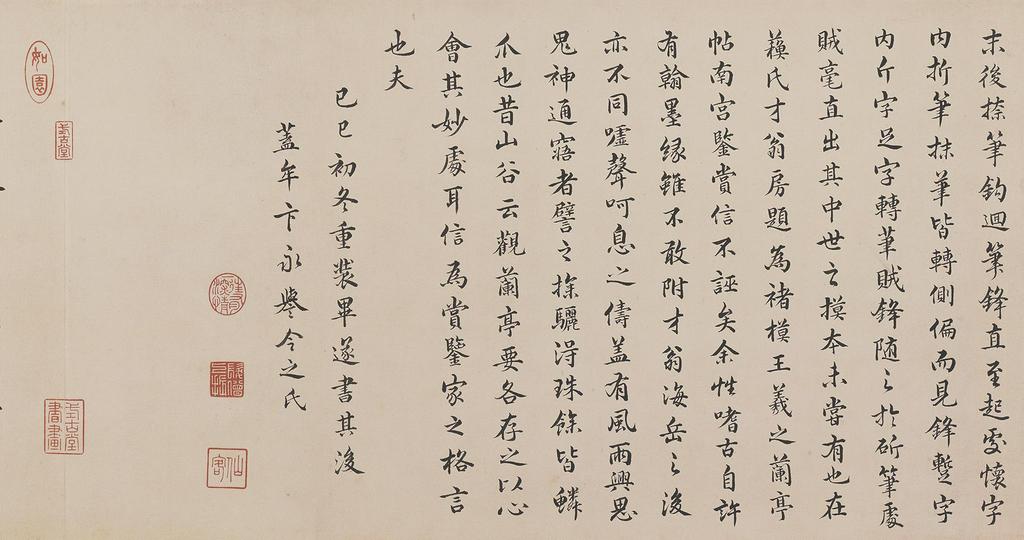 末後捺筆鈎迴筆鋒直至起處懷字
内折筆抹筆皆轉側偏而見鋒蹔字
内斤字足字轉筆賊鋒随之於斫筆處
賊毫直出其中世之摸本未嘗有也在
蘓氏才翁房題為褚模王羲之蘭亭
帖南宫鑒賞信不誣矣余性嗜古自許
有翰墨緣雖不敢附才翁海岳之後
亦不同嘘聲呵息之儔盖有風雨興思
鬼神通寤者譬之探驪得珠餘皆鱗
爪也昔山谷云觀蘭亭要各存之以心
會其妙處耳信為賞鑒家之格言
也夫
己巳初冬重裝畢遂書其後
盖牟卞永譽令之氏
仙客
如園
式古堂
式古堂書畫